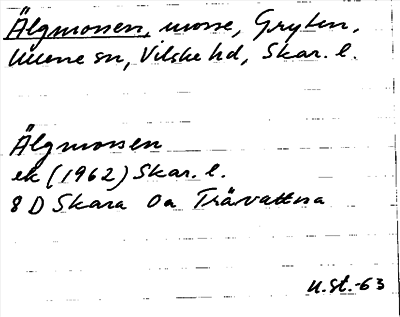 Älgmossen, mosse, Gryten,
sn, Vilske hd, Skar. l.
Älgmossen
ek (1962) Skar. l.
8 D Skara 0a Trävattna
U.St.-63